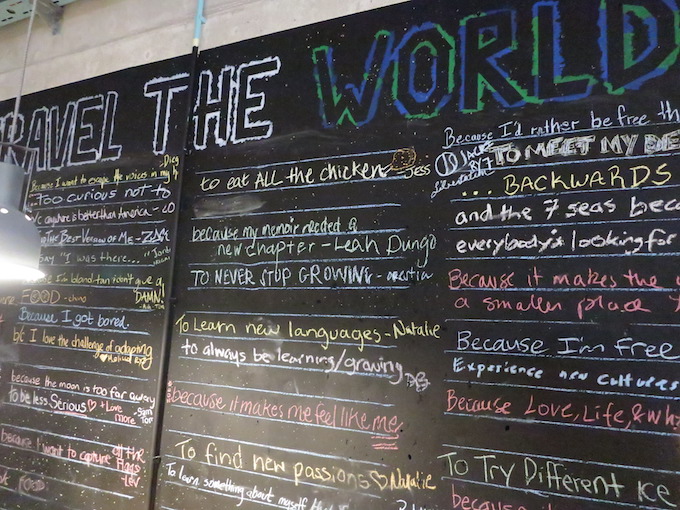 RAVEL THE WORLD
Because I want to escape the voices in my
too curious not to
b/c anywhere is better than America
THE BEST VERSION OF ME
SAY "I was there..."
give a
DAMN!
FOOD
Because I got bored.
b/c I love the challenge of adapting
because the moon is too far away
to be less serious ♡ + Love
more
because I want to capture all the
flags
-Lev
FOOD
to eat ALL the chicken
Jess
because my memoir needed a
new chapter - Leah Dungo
TO NEVER STOP GROWING
To Learn new languages - Natalie
to always be learning/growing
because it makes me feel like me.
To find new passions ♡ Natalie
To learn something about myself
Because I'd rather be free
TO MEET MY
... BACKWARDS
and the 7 seas
everybody's looking for
Because it makes the
a smaller place
Because I'm Free
Experience new cultures
Because Love, Life, &
To Try Different
because